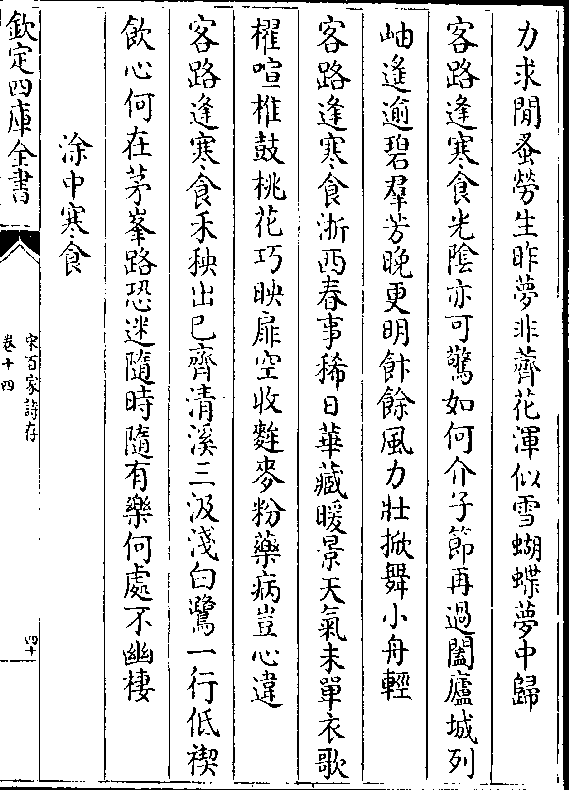 力求閒蚤勞生昨夢非薺花渾似雪蝴蝶夢中歸
客路逢寒食光陰亦可驚如何介子節再過闔廬城列
岫遙逾碧羣芳晚更明飰餘風力壯掀舞小舟輕
客路逢寒食浙西春事稀日華藏暖景天氣未單衣歌
櫂喧椎鼓桃花巧映扉空收麰麥粉藥病豈心違
客路逢寒食禾秧出已齊清溪三汲淺白鷺一行低禊
飲心何在茅峯路恐迷隨時隨有樂何處不幽棲
涂中寒食
欽定四庫全書
宋百家詩存
卷十四
四十